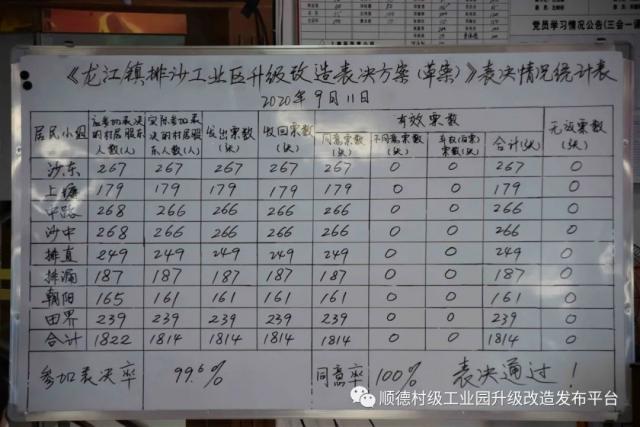 党员学习情况公告(三会一课
《龙江镇排沙工业区升级改造表决方案(草案)》表决情况统计表
2020年9月11日
居民小组 应参加表决的村居股东人数(人) 实际参加表决的村居股东人数(人) 发出票数(张) 收回票数(张) 有效票数 无效票数(张)
同意票数(张) 不同意票数(张) 弃权(白票)票数(张) 合计(张)
沙东 267 267 267 267 267 0 0 267 0
上塘 179 179 179 179 179 0 0 179 0
中路 268 266 266 266 266 0 0 266 0
沙中 268 266 266 266 266 0 0 266 0
排直 249 249 249 249 249 0 0 249 0
排涌 187 187 187 187 187 0 0 187 0
朝阳 165 161 161 161 161 0 0 161 0
田界 239 239 239 239 239 0 0 239 0
合计 1822 1814 1814 1814 1814 0 0 1814 0
参加表决率 99.6% 同意率 100% 表决通过!
顺德村级工业园升级改造发布平台